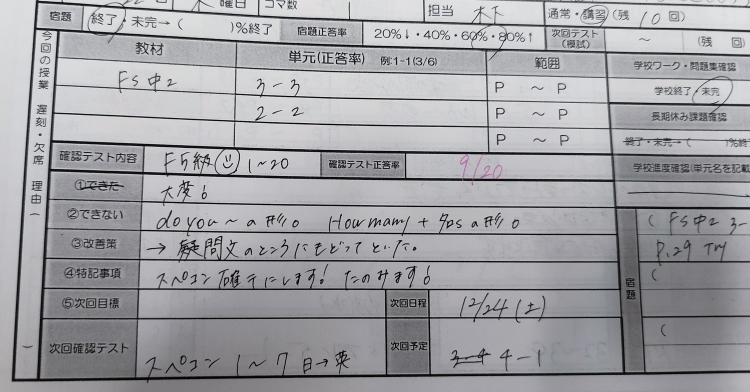 木 曜日 コマ数 担当 木下 通常・講習(残 10 回)
宿題 終了・未完→( )%終了 宿題正答率 20%↓・40%・60%・80%↑ 次回テスト(模試) ~ (残 回)
今回の授業 遅刻・欠席 理由( )
教材 単元(正答率) 例:1-1(3/6) 範囲 学校ワーク・問題集確認
FS中2 3-3 P ~ P 学校終了・未完
2-2 P ~ P 長期休み課題確認
P ~ P 終了・未完→( )%終
確認テスト内容 F5級 1~20 確認テスト正答率 9/20 学校進度確認(単元名を記載
①できた 大変。
②できない do you~の形。 How many + 名sの形。
③改善策 →疑問文のところにもどってといた。
④特記事項 スペコン確テにします! たのみます。
⑤次回目標 次回日程 12/24(土)
次回確認テスト スペコン 1~7 日→英 次回予定 3-4 4-1
宿題
( FS中2 3-
P.29 TM
(
(